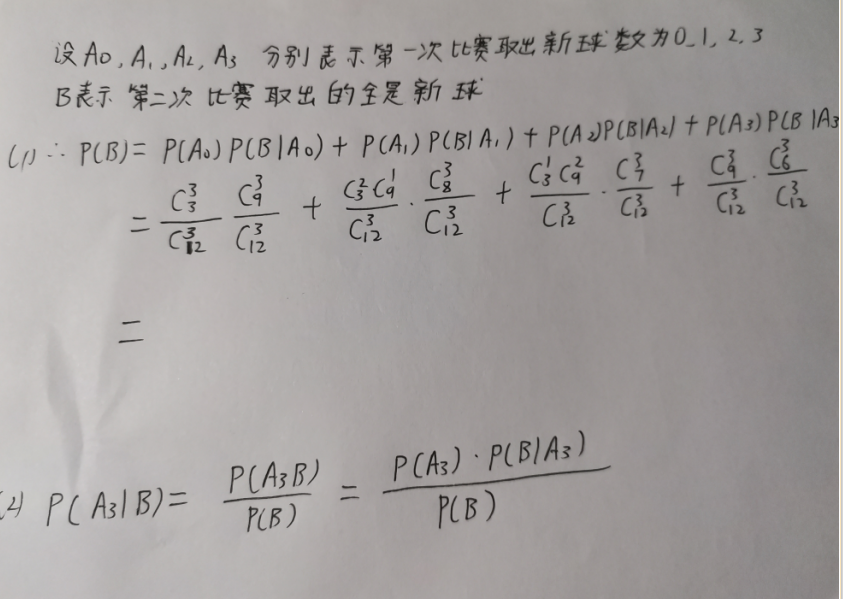 设A₀,A₁,A₂,A₃ 分别表示第一次比赛取出新球数为0,1,2,3
B表示第二次比赛取出的全是新球
(1)∴P(B)=P(A₀)P(B|A₀)+P(A₁)P(B|A₁)+P(A₂)P(B|A₂)+P(A₃)P(B|A₃
=C₃³/C₁₂³ C₉³/C₁₂³ + C₃²C₉¹/C₁₂³·C₈³/C₁₂³ + C₃¹C₉²/C₁₂³·C₇³/C₁₂³ + C₉³/C₁₂³·C₆³/C₁₂³
=
2) P(A₃|B)=P(A₃B)/P(B)=P(A₃)·P(B|A₃)/P(B)